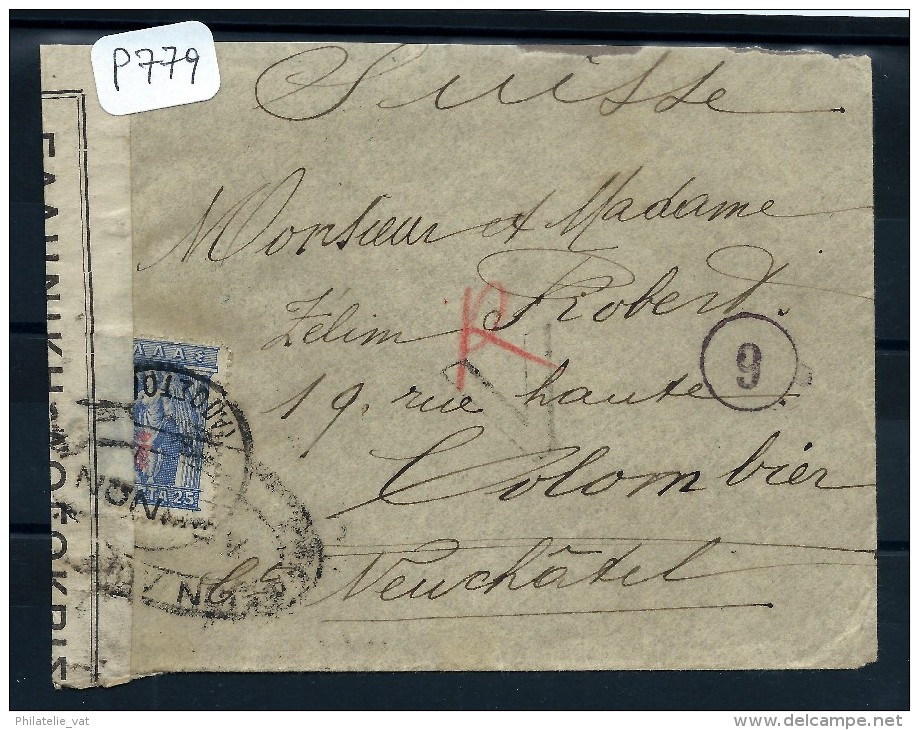 P779
Suisse
Monsieur et Madame
Zélim Robert.
19. rue haute
Colombier
Neuchâtel
R
9
ΕΛΛΗΝΙΚΗ
ΛΛΑΣ
25
Philatelie_vat
www.delcampe.net